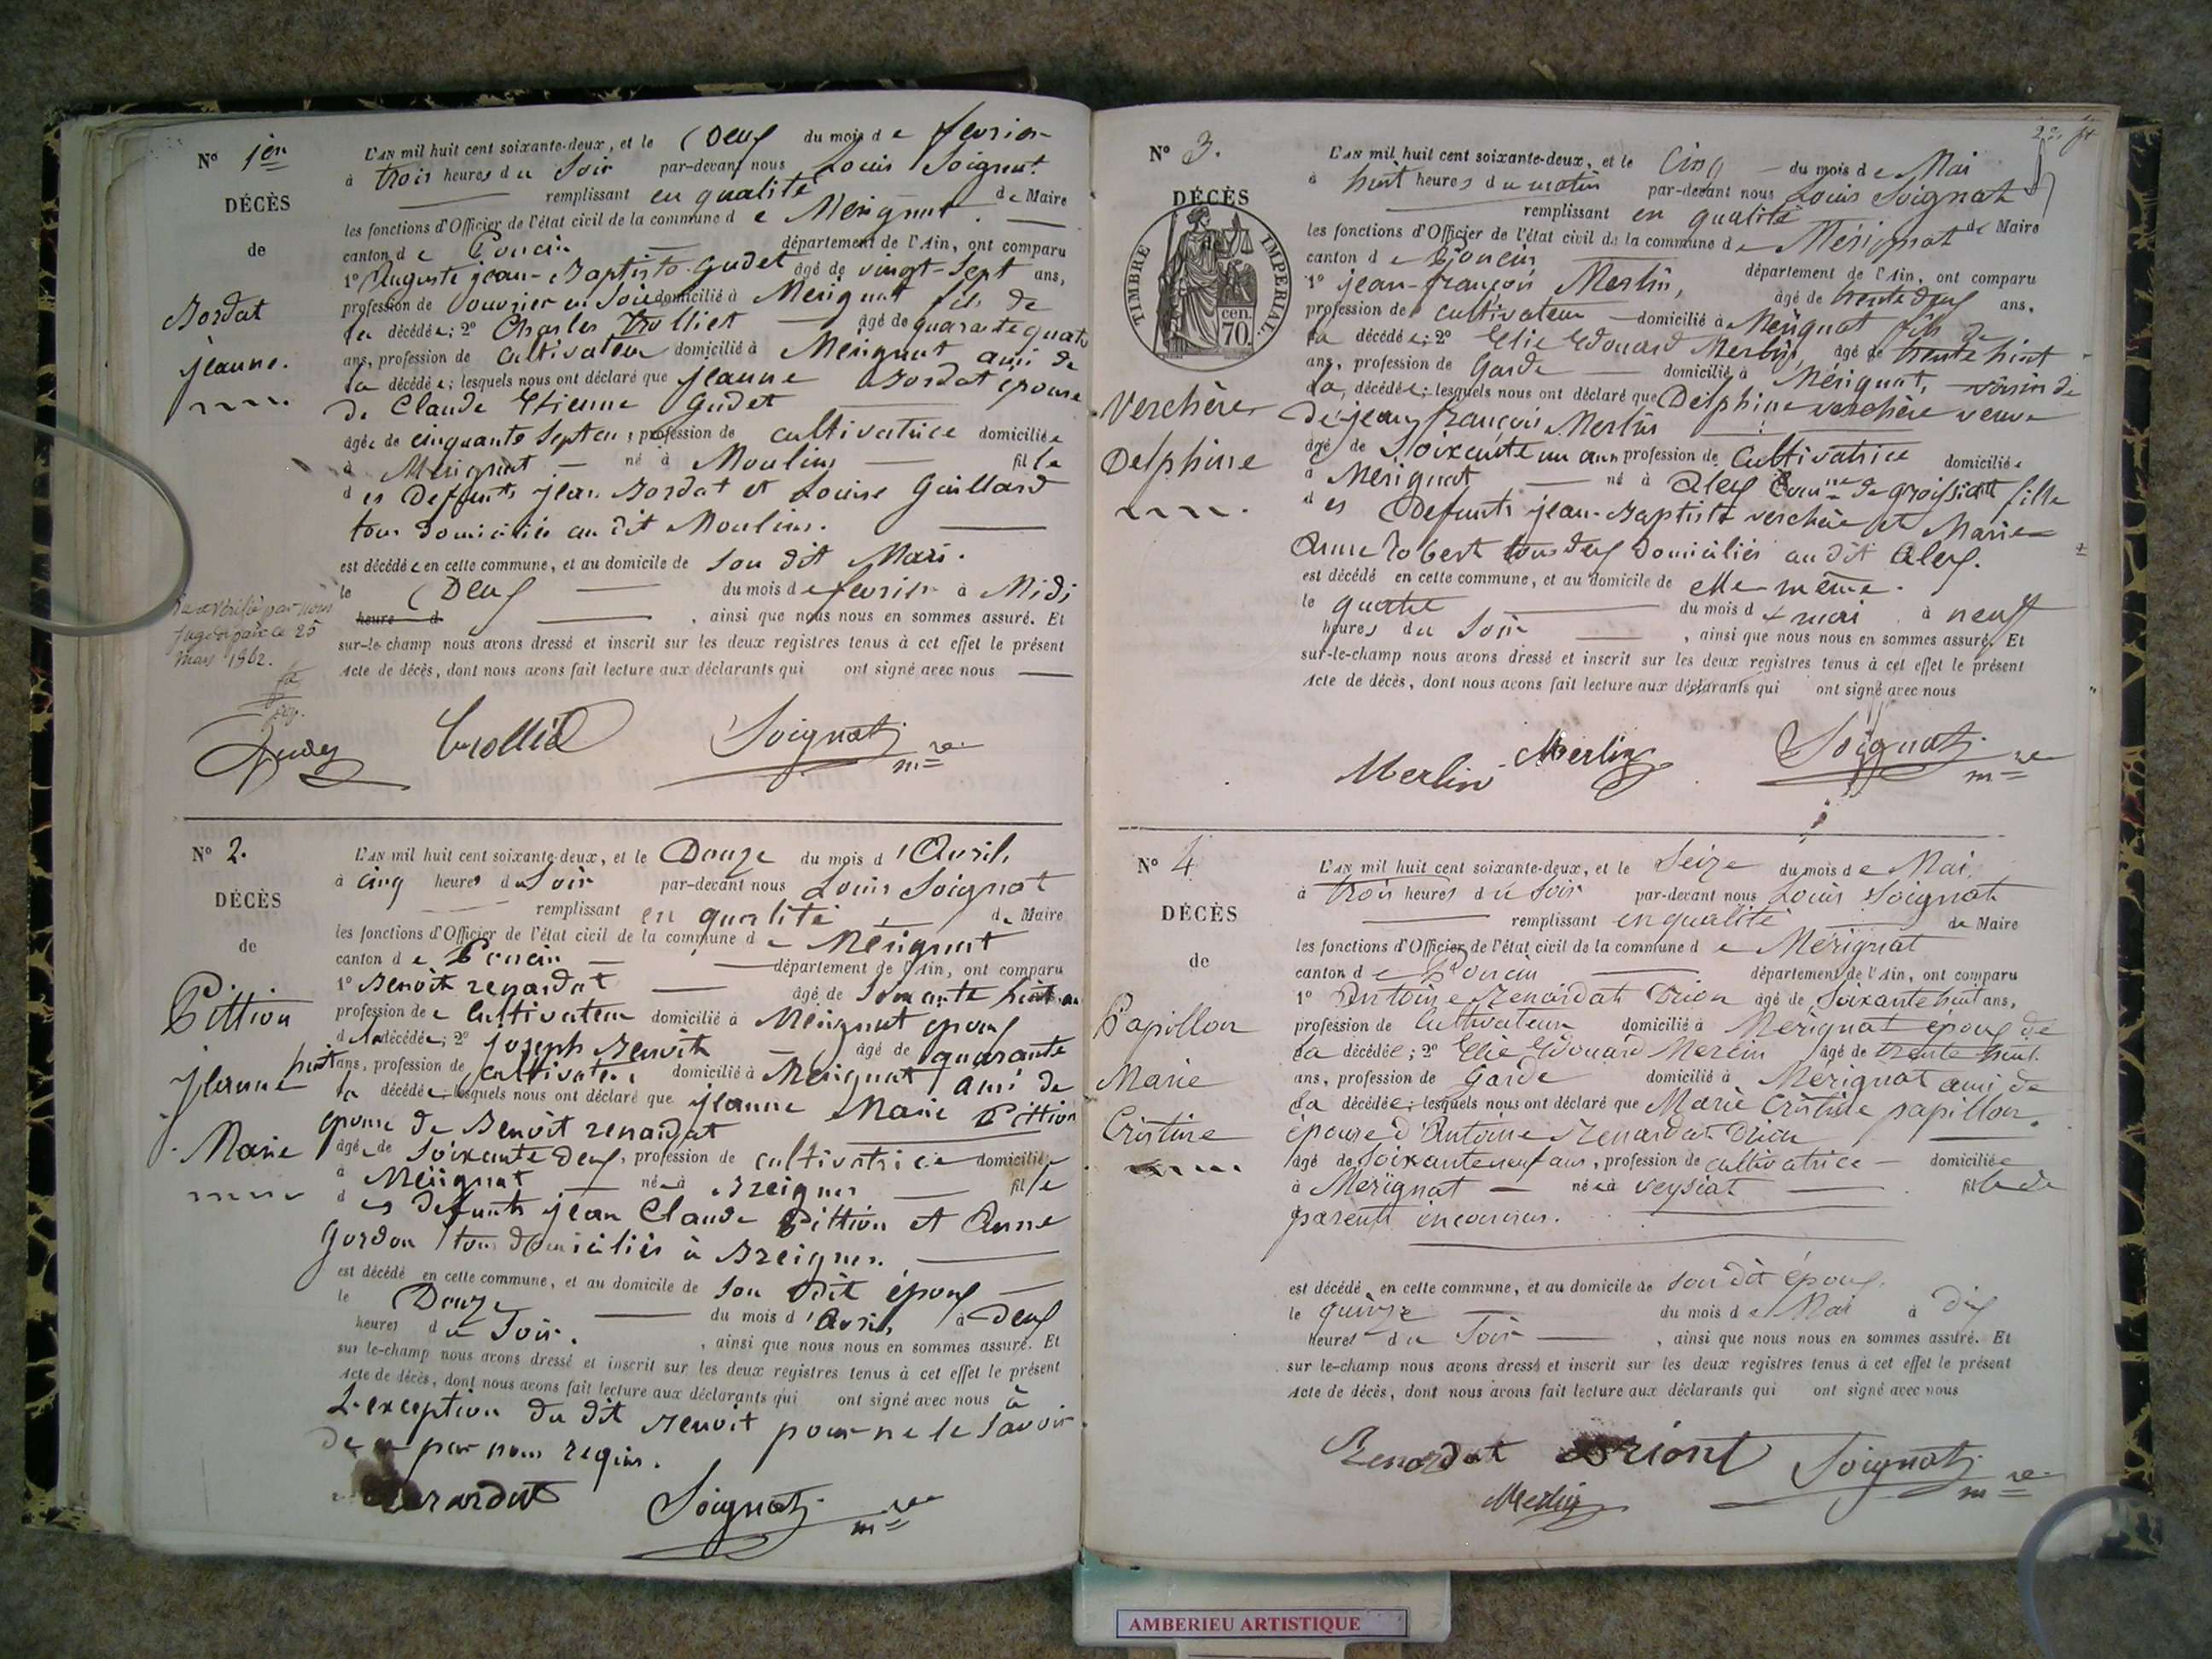 N° 1er
DÉCÈS
de
Bordat
jeanne.
L'AN mil huit cent soixante-deux, et le Deux du mois de fevrier
à trois heures du Soir par-devant nous Louis Soignat
remplissant en qualité de Maire
les fonctions d'Officier de l'état civil de la commune de Merignat.
canton de Poncin département de l'Ain, ont comparu
1° Auguste jean-Baptiste Gudet âgé de vingt-sept ans,
profession de ouvrier en Soie domicilié à Merignat fils de
la décédée; 2° Charles Trolliet âgé de quarante quatre
ans, profession de Cultivateur domicilié à Merignat ami de
la décédée; lesquels nous ont déclaré que jeanne Bordat épouse
de Claude Etienne Gudet
âgée de cinquante Sept ans, profession de cultivatrice domiciliée
à Merignat né à Moulins fille
des Deffunts jean Bordat et Louise Guillard
tous domiciliés au dit Moulins.
est décédée en cette commune, et au domicile de Son dit Mari.
le Deux du mois de fevrier à Midi
heure d , ainsi que nous nous en sommes assuré. Et
sur-le-champ nous avons dressé et inscrit sur les deux registres tenus à cet effet le présent
Acte de décès, dont nous avons fait lecture aux déclarants qui ont signé avec nous
par nous
juge de paix le 25
mars 1862.
Gudet Trolliet Soignat mre
N° 2.
DÉCÈS
de
Pittion
jeanne
Marie
L'AN mil huit cent soixante-deux, et le Douze du mois d'Avril,
à cinq heures du Soir par-devant nous Louis Soignat
remplissant en qualité de Maire
les fonctions d'Officier de l'état civil de la commune de Merignat
canton de Poncin département de l'Ain, ont comparu
1° Benoit renardat âgé de Soixante huit ans
profession de Cultivateur domicilié à Merignat epoux
de la décédée; 2° joseph Benoit âgé de quarante
huit ans, profession de cultivateur domicilié à Merignat ami de
la décédée lesquels nous ont déclaré que jeanne Marie Pittion
epouse de Benoit renardat
âgée de Soixante deux, profession de cultivatrice domiciliée
à Merignat née à Breignes fille
des defunts jean Claude Pittion et Anne
Gordon tous domiciliés à Breignes.
est décédé en cette commune, et au domicile de Son Dit époux
le Douze du mois d'Avril, à Deux
heures du Soir. , ainsi que nous nous en sommes assuré. Et
sur le-champ nous avons dressé et inscrit sur les deux registres tenus à cet effet le présent
Acte de décès, dont nous avons fait lecture aux déclarants qui ont signé avec nous à
L'exception du dit Benoit pour ne le Savoir
de ce par nous requis.
renardat Soignat mre
N° 3.
DÉCÈS
TIMBRE IMPERIAL.
70. cen.
Verchère
Delphine
L'AN mil huit cent soixante-deux, et le Cinq du mois de Mai
à huit heures du matin par-devant nous Louis Soignat
remplissant en qualité de Maire
les fonctions d'Officier de l'état civil de la commune de Mérignat
canton de Poncin département de l'Ain, ont comparu
1° jean-françois Merlin, âgé de trente deux ans,
profession de cultivateur domicilié à Mérignat fils de
la décédée; 2° Elie Edouard Merlin, âgé de trente huit
ans, profession de Garde domicilié à Mérignat, voisin de
la décédée; lesquels nous ont déclaré que Delphine verchère veuve
de jean françois Merlin
âgé de Soixante un ans profession de Cultivatrice domiciliée
à Merignat né à Alex Comne de groissiat fille
des Defunts jean-Baptiste verchère et Marie
Anne robert tous deux domiciliés au dit Alex.
est décédé en cette commune, et au domicile de elle même.
le quatre du mois de mai à neuf
heures du Soir , ainsi que nous nous en sommes assuré. Et
sur-le-champ nous avons dressé et inscrit sur les deux registres tenus à cet effet le présent
Acte de décès, dont nous avons fait lecture aux déclarants qui ont signé avec nous
Merlin Merlin Soignat mre
N° 4
DÉCÈS
de
Papillon
Marie
Cristine
L'AN mil huit cent soixante-deux, et le Seize du mois de Mai,
à trois heures du Soir par-devant nous Louis Soignat
remplissant en qualité de Maire
les fonctions d'Officier de l'état civil de la commune de Mérignat
canton de Poncin département de l'Ain, ont comparu
1° Antoine Renardat Drion âgé de Soixante huit ans,
profession de Cultivateur domicilié à Merignat époux de
la décédée; 2° Elie Edouard Merlin âgé de trente huit
ans, profession de Garde domicilié à Mérignat ami de
la décédée; lesquels nous ont déclaré que Marie Cristine papillon.
épouse d'Antoine Renardat Drion
âgé de Soixante neuf ans, profession de cultivatrice domiciliée
à Mérignat née à veysiat fille de
parents inconnus.
est décédé en cette commune, et au domicile de Son dit époux.
le quinze du mois de Mai à Dix
heures du Soir , ainsi que nous nous en sommes assuré. Et
sur le-champ nous avons dressé et inscrit sur les deux registres tenus à cet effet le présent
Acte de décès, dont nous avons fait lecture aux déclarants qui ont signé avec nous
Renardat Driont Soignat mre
Merlin
AMBERIEU ARTISTIQUE